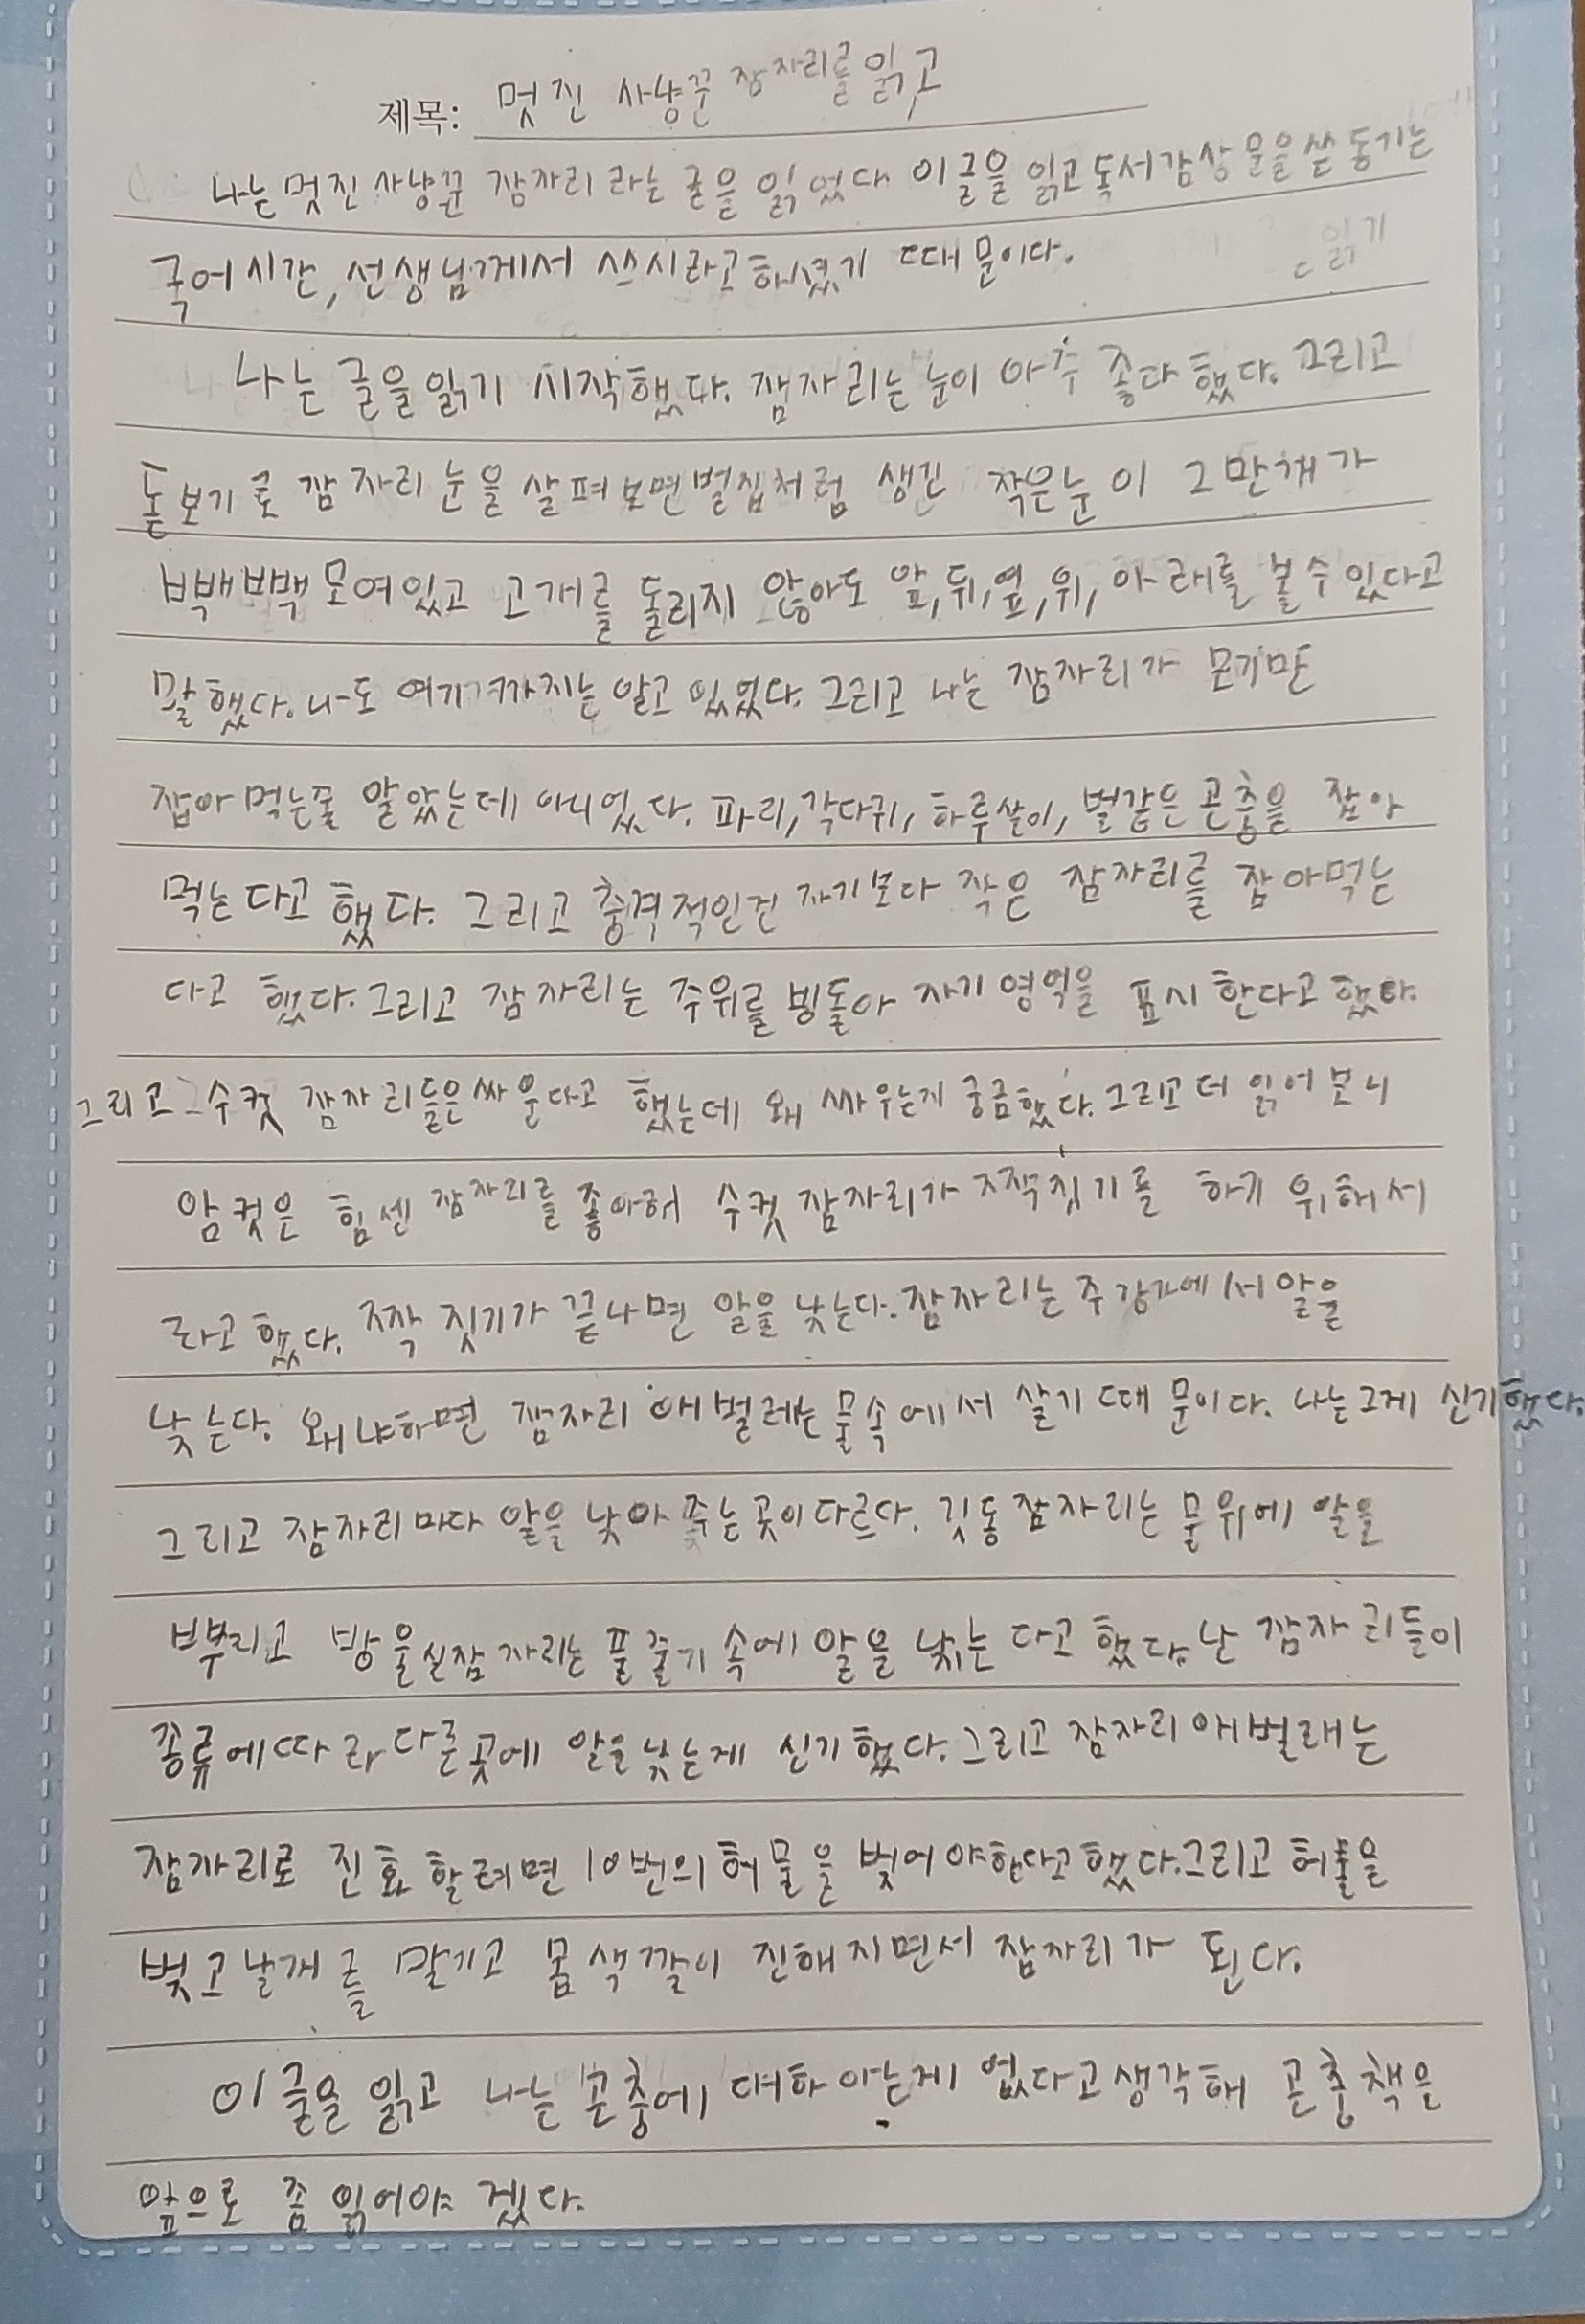 제목: 멋진 사냥꾼 잠자리를 읽고
나는 멋진 사냥꾼 잠자리 라는 글을 읽었다 이글을 읽고 독서감상문을 쓴 동기는
국어시간, 선생님께서 쓰시라고 하셨기 때문이다.
나는 글을 읽기 시작했다. 잠자리는 눈이 아주 좋다했다. 그리고
돋보기로 잠자리 눈을 살펴보면 벌집처럼 생긴 작은눈이 그만개가
빽빽 모여있고 고개를 돌리지 않아도 앞, 뒤, 옆, 위, 아래를 볼수있다고
말했다. 나도 여기까지는 알고 있었다. 그리고 나는 잠자리가 모기만
잡아먹는줄 알았는데 아니었다. 파리, 각다귀, 하루살이, 벌같은 곤충을 잡아
먹는다고 했다. 그리고 충격적인건 자기보다 작은 잠자리를 잡아먹는
다고 했다. 그리고 잠자리는 주위를 빙돌아 자기 영역을 표시 한다고 했다.
그리고 수컷 잠자리들은 싸운다고 했는데 왜 싸우는게 궁금했다. 그리고 더 읽어 보니
암컷은 힘센 잠자리를 좋아해 수컷 잠자리가 짝짓기를 하기 위해서
라고 했다. 짝짓기가 끝나면 알을 낳는다. 잠자리는 주 강가에서 알을
낳는다. 왜냐하면 잠자리 애벌레는 물속에서 살기 때문이다. 나는그게 신기했다.
그리고 잠자리마다 알을 낳아 주는곳이 다르다. 깃동잠자리는 물위에 알을
뿌리고 방울실잠자리는 풀줄기 속에 알을 낳는 다고 했다. 난 잠자리들이
종류에따라 다른곳에 알을낳는게 신기했다. 그리고 잠자리 애벌래는
잠자리로 진화 할려면 10번의 허물을 벗어야한다고 했다. 그리고 허물을
벗고 날개를 말기고 몸 색깔이 진해지면서 잠자리가 된다.
이 글을 읽고 나는 곤충에 대하 아는게 없다고생각해 곤충책을
앞으로 좀 읽어야 겠다.